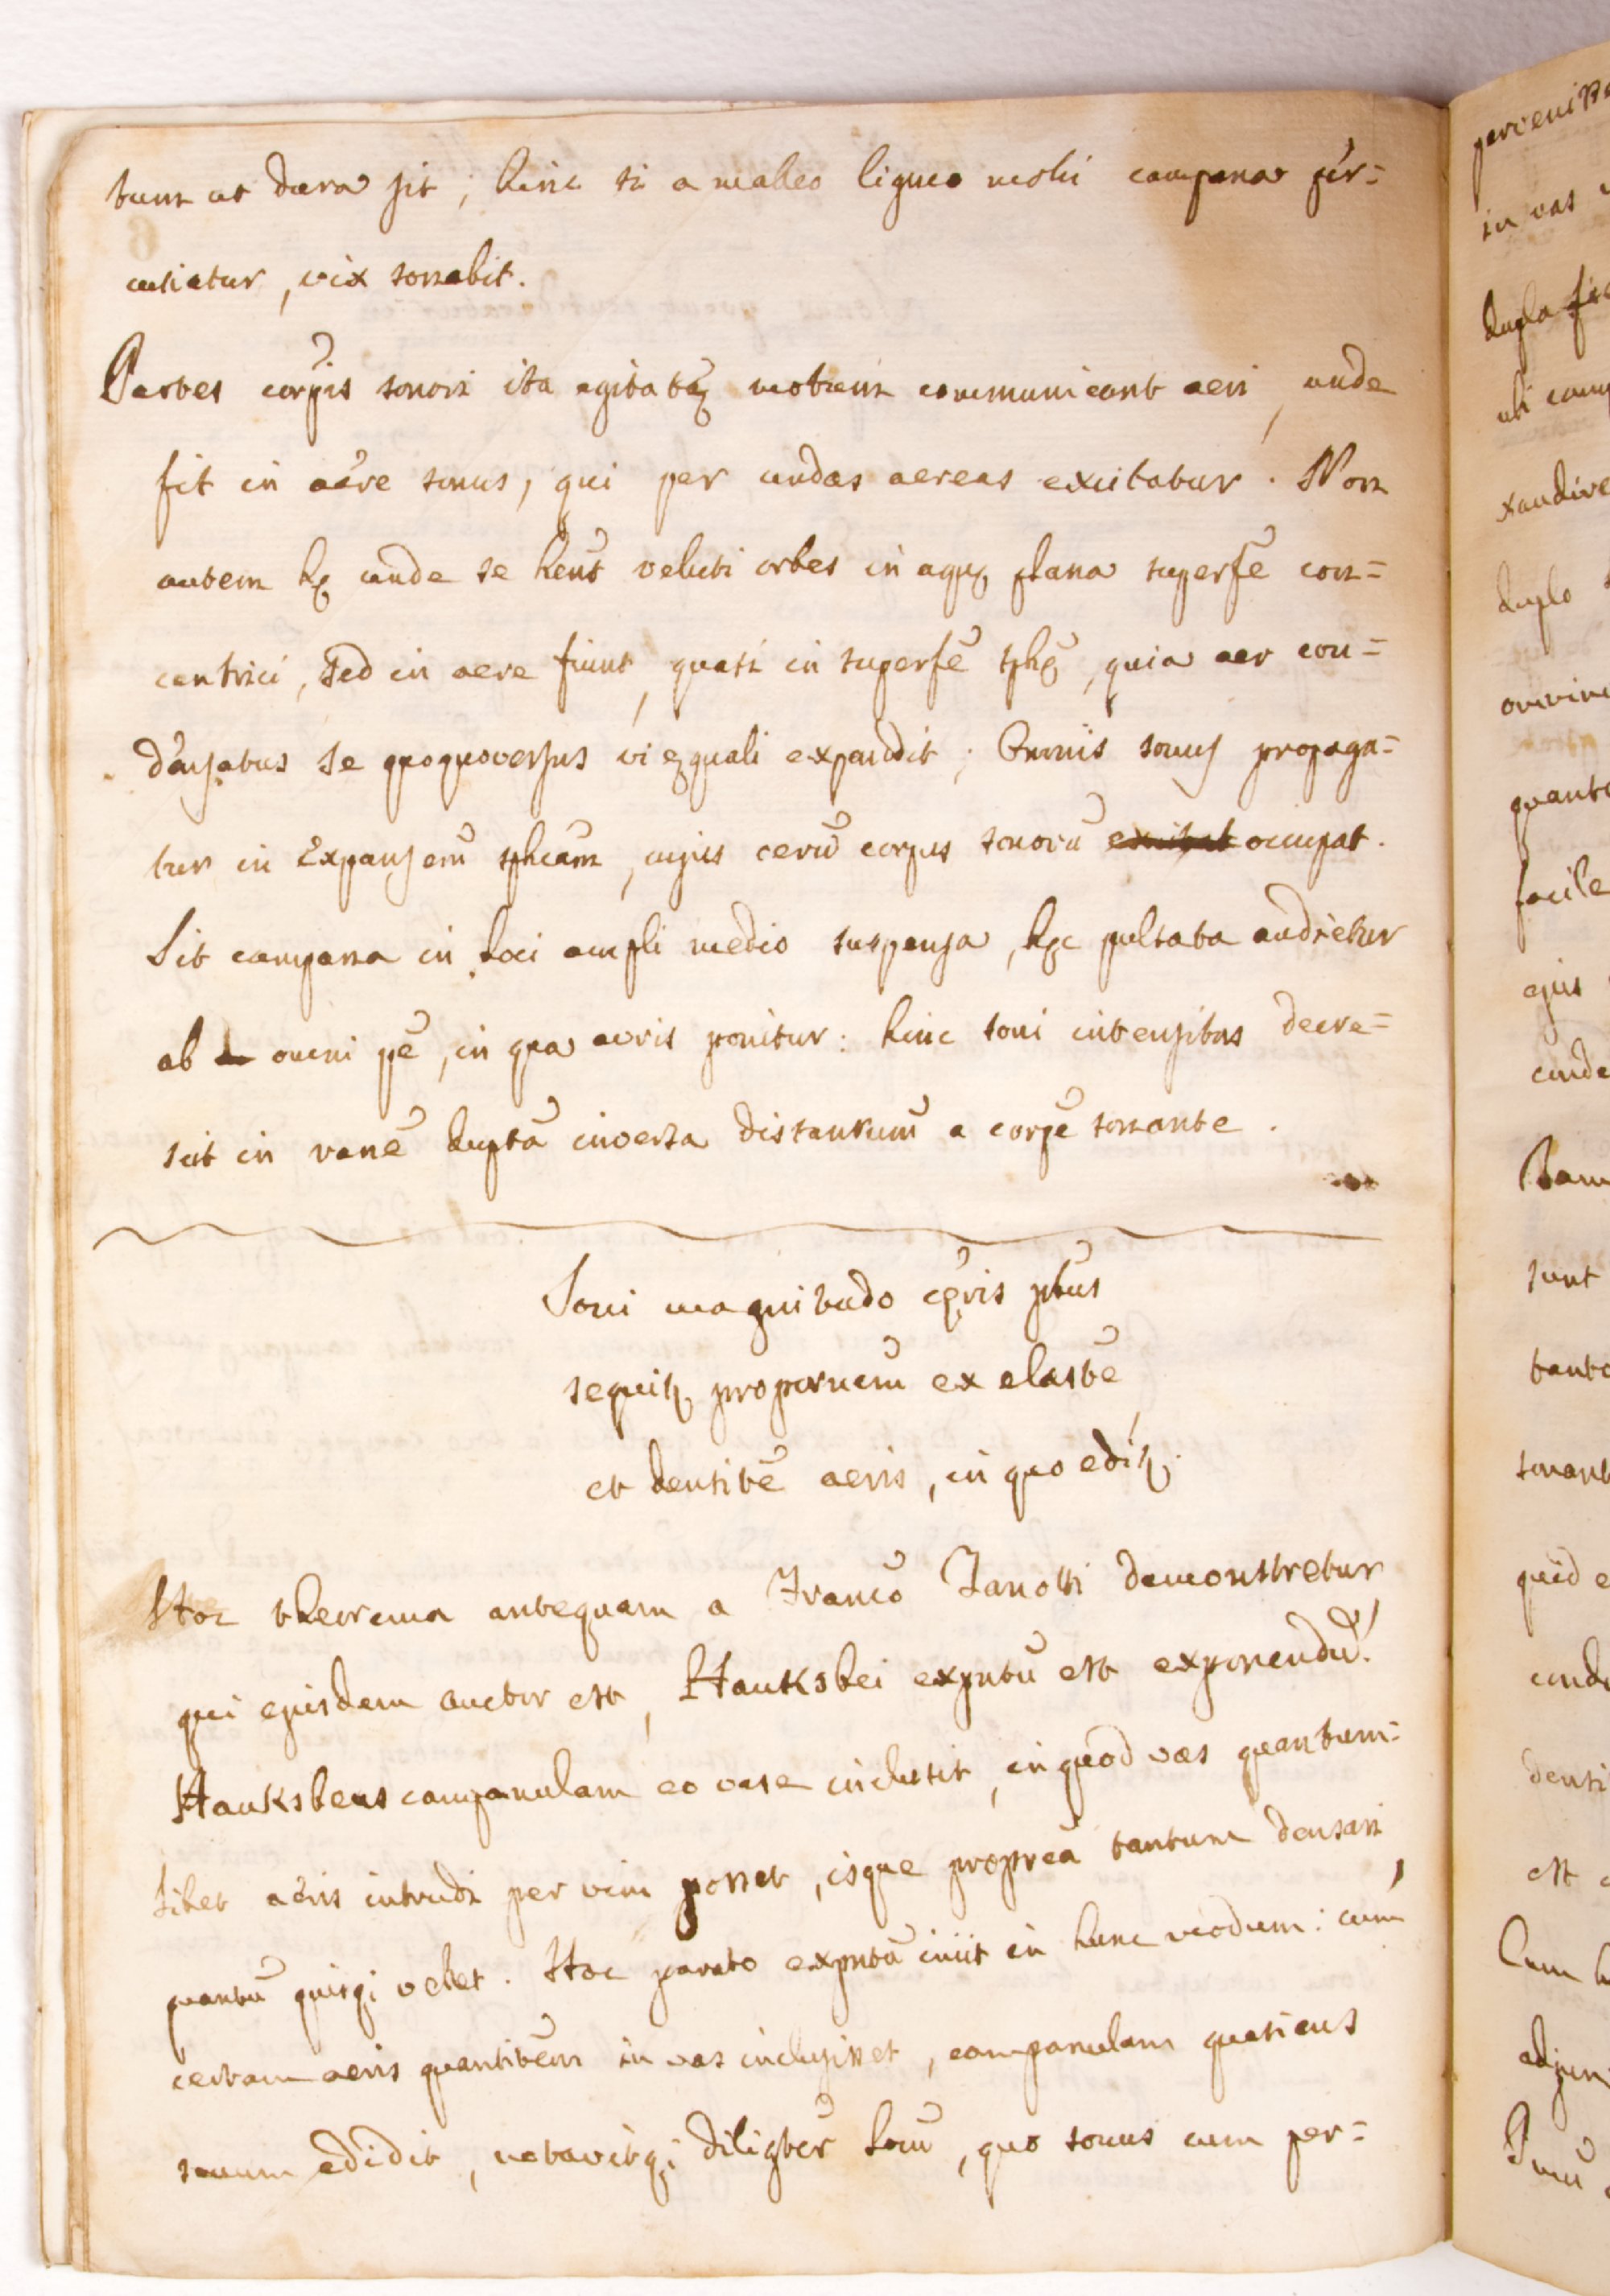 tum ut dura sit, hinc si a malleo ligneo molli campana per=
cutiatur, vix sonabit.
Partes corpis sonori ita agitatę motum communicant aeri, unde
fit in aëre sonus, qui per undas aereas excitatur. Non
autem hę undę se hent veluti orbes in aquę plana superfe con=
centrici, sed in aere fiunt, quasi in superfe sphę, quia aer con=
densatus se quoquoversus vi ęquali expandit; Omnis sonus propaga=
tur in expansem spheam, cujus cerum corpus sonorū occupat.
Sit campana in loci ampli medio suspensa, hęc pulsata audietur
ab omni pe, in qua auris ponitur: hinc soni intensitas decre=
scit in rone dupta inversa distantium a corpe sonante.
Soni magnitudo cęris pbus
sequitr proponem ex elaste
et densite aeris, in quo editr.
Hoc theorema antequam a Franco Zanotti demonstretur
qui ejusdem auctor est, Hauksbei exptū est exponendū.
Hauksbeus campanulam eo vase inclusit, in quod vas quantum=
libet aëris intrudi per vim posset, isque proprea tantum densari,
quantū quisqi vellet. Hoc parato exptū iniit in hunc modum: cum
certam aeris quantitem in vas inclusisset, campanulam quatiens
sonum edidit, notavitqi diligter locū, quo sonus cum per=
perveniss
in vas
dupla
ubi camp
xaudire
duplo
quanto
facile
ejus
unde
sunt
tanto
sonant
quid e
unde
densi
est
Cum h
adjun